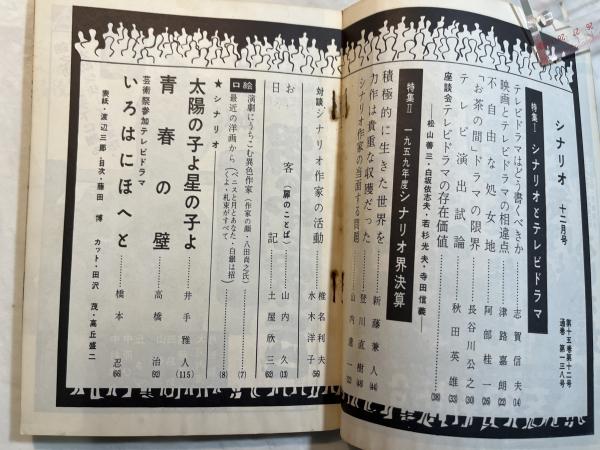 シナリオ 十二月号
第十五巻第十二号
通巻 第一三八号
特集Ⅰ シナリオとテレビドラマ
テレビドラマはどう書くべきか……志賀信夫(14)
映画とテレビドラマの相違点……津路嘉朗(22)
不自由な処女地……阿部桂一(26)
「お茶の間」ドラマの限界……長谷川公之(30)
テレビ演出試論……秋田英雄
座談会テレビドラマの存在価値……(38)
松山善三・白坂依志夫・若杉光夫・寺田信義
特集Ⅱ 一九五九年度シナリオ界決算
積極的に生きた世界を……新藤兼人(44)
力作は貴重な収穫だった……登川直樹(48)
シナリオ作家の当面する問題……山内
対談シナリオ作家の活動……椎名利夫
水木洋子(56)
お客(扉のことば)……山内久(13)
日記……土屋欣三(62)
口絵
演劇にうちこむ異色作家(作家の顔・八田尚之氏)……(7)
最近の洋画から(ベニスと月とあなた・白銀は招くよ・札束がすべて)……(8)
★シナリオ
太陽の子よ星の子よ……井手雅人(115)
青春の壁……高橋治(92)
芸術祭参加テレビドラマ
いろはにほへと……橋本忍(66)
表紙・渡辺三郎・目次・藤田 博 カット・田沢 茂・高丘盛二